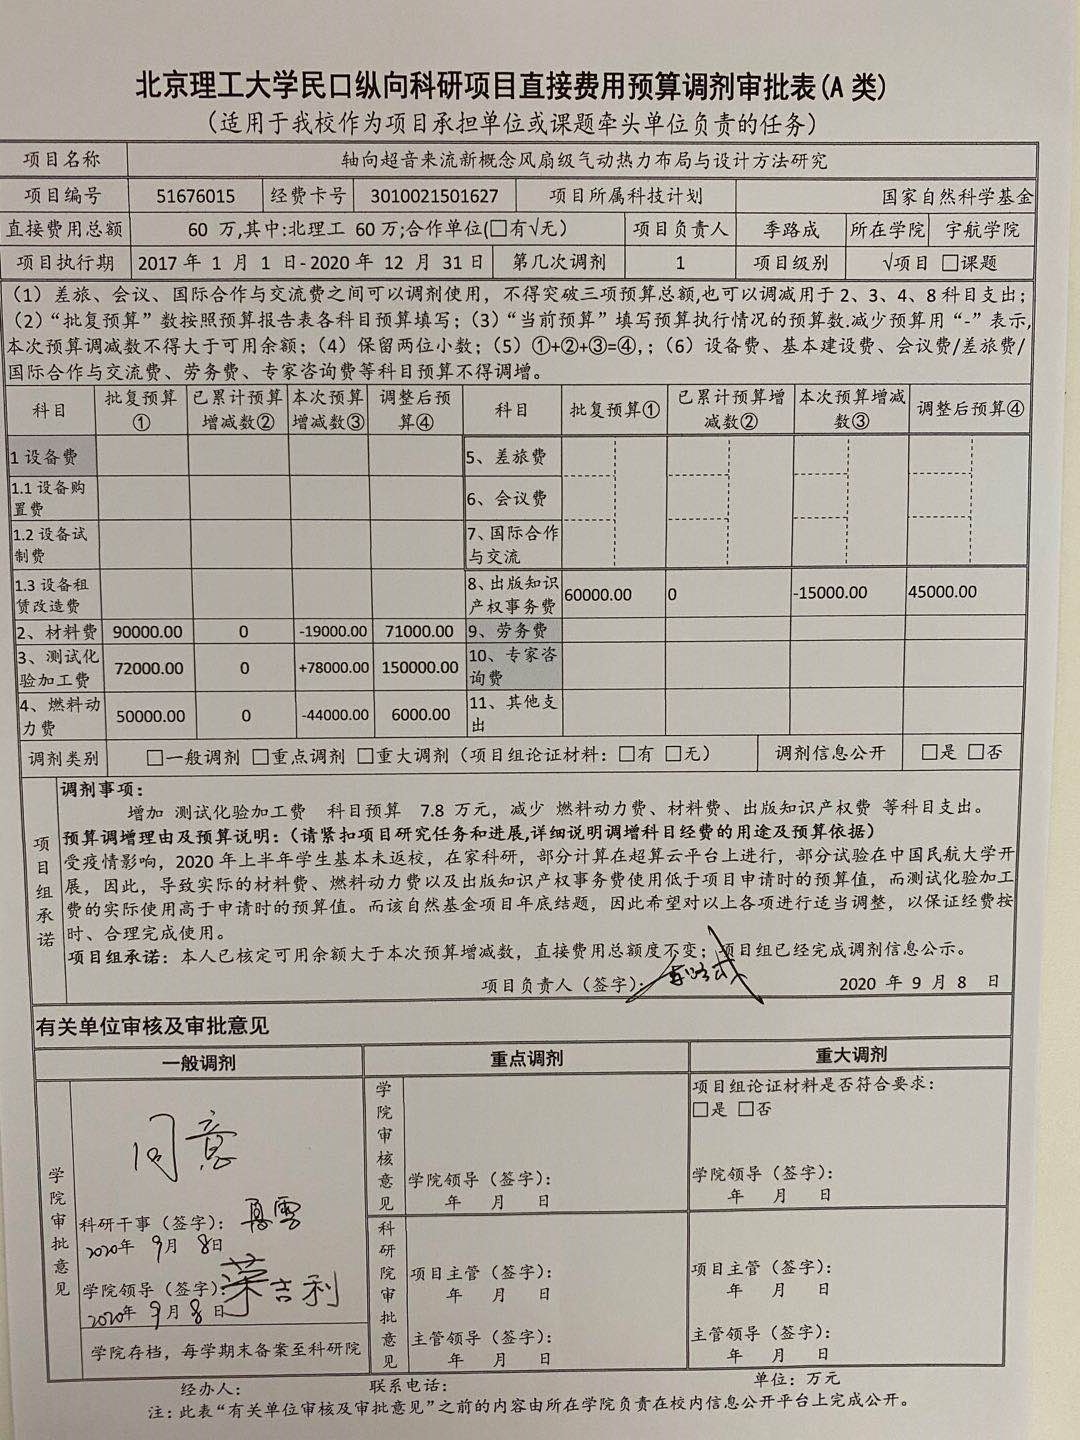 北京理工大学民口纵向科研项目直接费用预算调剂审批表(A 类)
(适用于我校作为项目承担单位或课题牵头单位负责的任务)
项目名称 轴向超音来流新概念风扇级气动热力布局与设计方法研究
项目编号 51676015 经费卡号 3010021501627 项目所属科技计划 国家自然科学基金
直接费用总额 60 万,其中:北理工 60 万;合作单位(□有√无) 项目负责人 季路成 所在学院 宇航学院
项目执行期 2017 年 1 月 1 日- 2020 年 12 月 31 日 第几次调剂 1 项目级别 √项目 □课题
(1)差旅、会议、国际合作与交流费之间可以调剂使用,不得突破三项预算总额,也可以调减用于 2、3、4、8 科目支出;
(2)“批复预算”数按照预算报告表各科目预算填写;(3)“当前预算”填写预算执行情况的预算数.减少预算用“-”表示,
本次预算调减数不得大于可用余额;(4)保留两位小数;(5)①+②+③=④,;(6)设备费、基本建设费、会议费/差旅费/
国际合作与交流费、劳务费、专家咨询费等科目预算不得调增。
科目 批复预算① 已累计预算增减数② 本次预算增减数③ 调整后预算④ 科目 批复预算① 已累计预算增减数② 本次预算增减数③ 调整后预算④
1 设备费 5、差旅费
1.1 设备购置费 6、会议费
1.2 设备试制费 7、国际合作与交流
1.3 设备租赁改造费 8、出版知识产权事务费 60000.00 0 -15000.00 45000.00
2、材料费 90000.00 0 -19000.00 71000.00 9、劳务费
3、测试化验加工费 72000.00 0 +78000.00 150000.00 10、专家咨询费
4、燃料动力费 50000.00 0 -44000.00 6000.00 11、其他支出
调剂类别 □一般调剂 □重点调剂 □重大调剂(项目组论证材料:□有 □无) 调剂信息公开 □是 □否
项目组承诺
调剂事项:
增加 测试化验加工费 科目预算 7.8 万元,减少 燃料动力费、材料费、出版知识产权费 等科目支出。
预算调增理由及预算说明:(请紧扣项目研究任务和进展,详细说明调增科目经费的用途及预算依据)
受疫情影响,2020 年上半年学生基本未返校,在家科研,部分计算在超算云平台上进行,部分试验在中国民航大学开
展,因此,导致实际的材料费、燃料动力费以及出版知识产权事务费使用低于项目申请时的预算值,而测试化验加工
费的实际使用高于申请时的预算值。而该自然基金项目年底结题,因此希望对以上各项进行适当调整,以保证经费按
时、合理完成使用。
项目组承诺:本人已核定可用余额大于本次预算增减数,直接费用总额度不变;项目组已经完成调剂信息公示。
项目负责人(签字): 季路成 2020 年 9 月 8 日
有关单位审核及审批意见
一般调剂 重点调剂 重大调剂
学院审批意见
同意
科研干事(签字):
2020年 9月 8日
学院领导(签字): 荣吉利
2020年 9月 8日
学院存档,每学期末备案至科研院
学院审核意见
学院领导(签字):
年 月 日
科研院审批意见
项目主管(签字):
年 月 日
主管领导(签字):
年 月 日
项目组论证材料是否符合要求:
□是 □否
学院领导(签字):
年 月 日
项目主管(签字):
年 月 日
主管领导(签字):
年 月 日
经办人: 联系电话: 单位:万元
注:此表“有关单位审核及审批意见”之前的内容由所在学院负责在校内信息公开平台上完成公开。